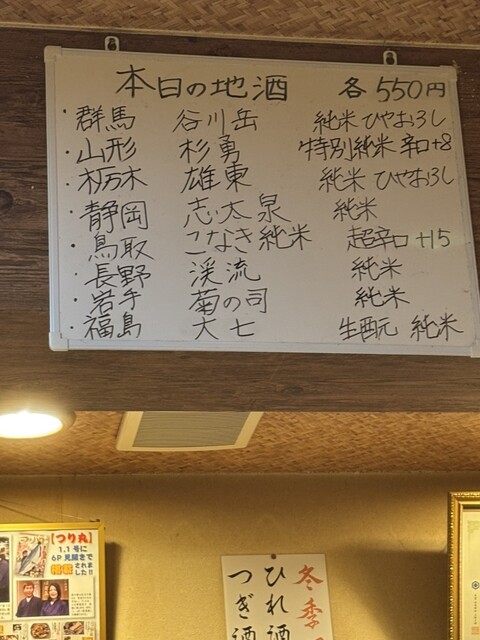 本日の地酒 各550円
・群馬 谷川岳 純米ひやおろし
・山形 杉勇 特別純米 辛口+8
・栃木 雄東 純米 ひやおろし
・静岡 志太泉 純米
・鳥取 こなき純米 超辛口 +15
・長野 渓流 純米
・岩手 菊の司 純米
・福島 大七 生酛 純米
【つり丸】
1.1号に
6P見開きで
掲載されました!!
冬季
ひれ酒
つぎ酒